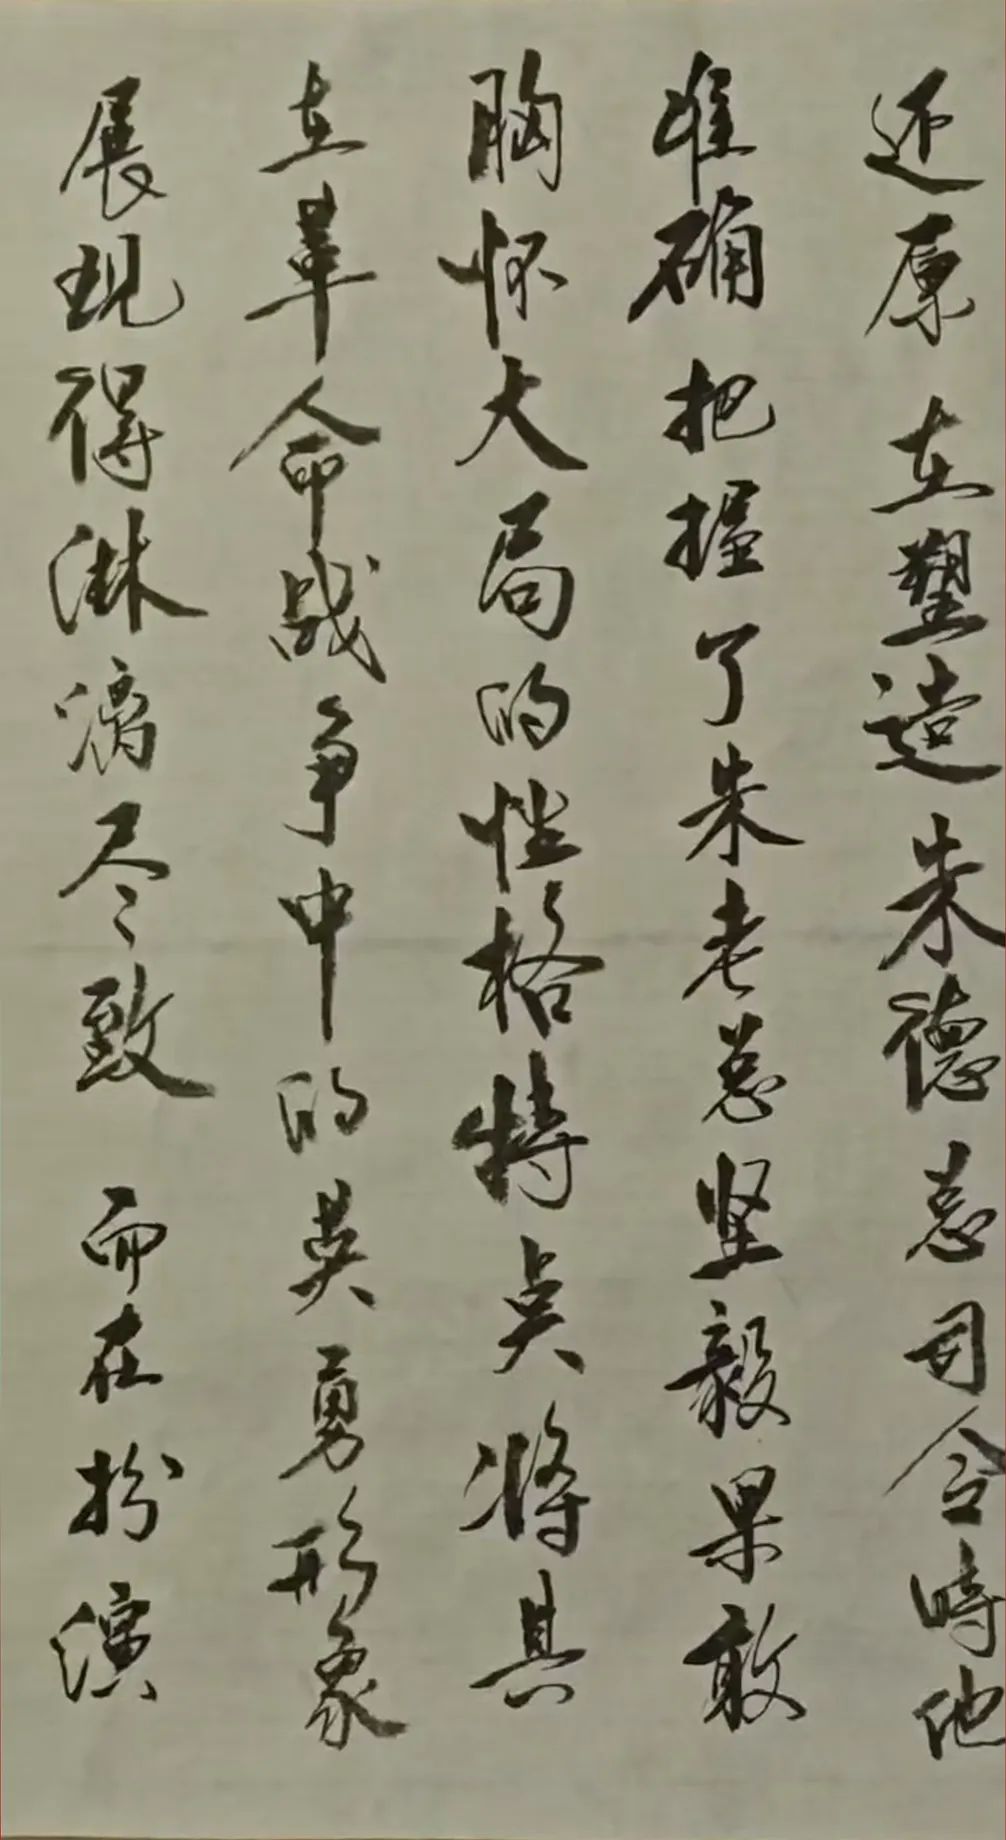 还原在塑造朱德总司令時他
准确把握了朱老总坚毅果敢
胸怀大局的性格特点将其
在革命战争中的英勇形象
展现得淋漓尽致而在扮演